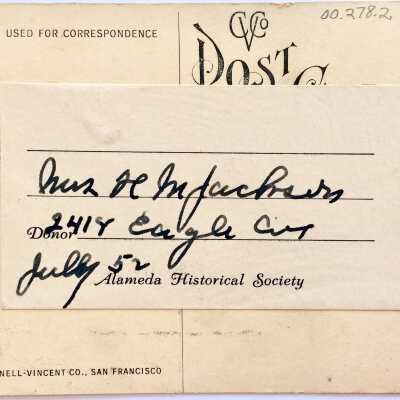 00.278.2
USED FOR CORRESPONDENCE
VCo
POST C
Mrs H M Jackson
2418 Eagle Ave
Donor
July 52
Alameda Historical Society
NELL-VINCENT CO., SAN FRANCISCO